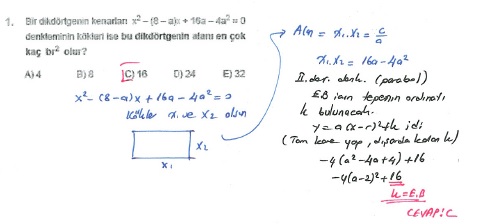 1. Bir dikdörtgenin kenarları x² – (8 – a)x + 16a – 4a² = 0
denkleminin kökleri ise bu dikdörtgenin alanı en çok
kaç br² olur?
A) 4 B) 8 C) 16 D) 24 E) 32
x² – (8 – a)x + 16a – 4a² = 0
kökler x₁ ve x₂ olsun
x₂
x₁
Alan = x₁.x₂ = c/a
x₁.x₂ = 16a – 4a²
II. der. denk. (parabol)
EB için tepenin ordinatı
k bulunacak.
y = a(x–r)²+k idi
(Tam kare yap, dışarda kalan k)
–4(a²–4a+4)+16
–4(a–2)²+16
k = E.B
CEVAP: C